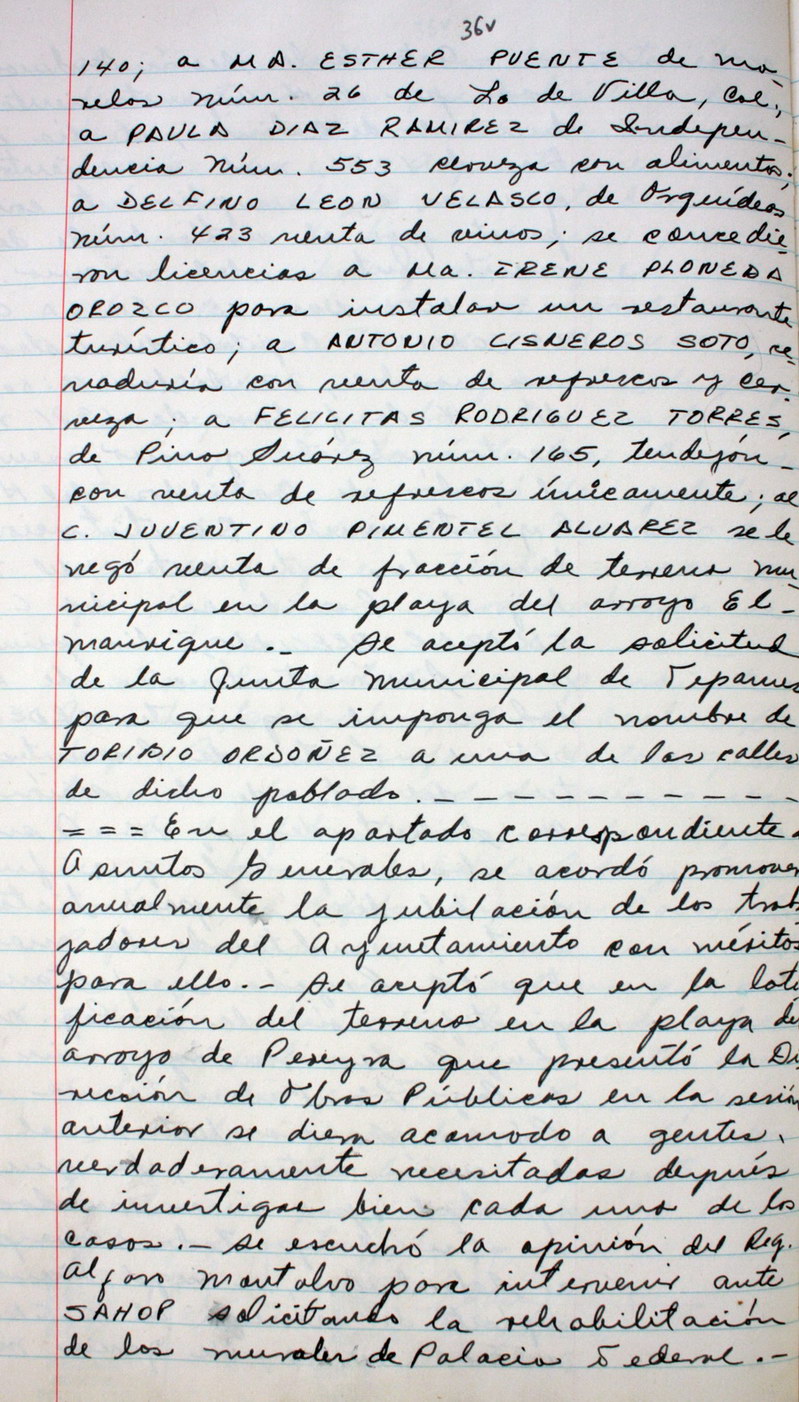 36v
140; a MA. ESTHER PUENTE de mo-
relos núm. 26 de Lo de Villa, Col.,
a PAULA DIAZ RAMIREZ de Indepen-
dencia núm. 553 cerveza con alimentos;
a DELFINO LEON VELASCO, de Orquídeas
núm. 423 venta de vinos; se concedie-
ron licencias a Ma. IRENE PLONEDA
OROZCO para instalar un restaurante
turístico; a ANTONIO CISNEROS SOTO, ce-
naduría con venta de refrescos y cer-
veza; a FELICITAS RODRIGUEZ TORRES,
de Pino Suárez núm. 165, tendejón -
con venta de refrescos únicamente; al
C. JUVENTINO PIMENTEL ALVAREZ se le
negó venta de fracción de terreno mu-
nicipal en la playa del arroyo El -
manrique. - Se aceptó la solicitud
de la Junta Municipal de Tepames
para que se imponga el nombre de
TORIBIO ORDOÑEZ a una de las calles
de dicho poblado. - - - - - - - - - - -
= = = En el apartado correspondiente a
Asuntos Generales, se acordó promover
anualmente la jubilación de los trab
jadores del Ayuntamiento con méritos
para ello. - Se aceptó que en la loti
ficación del terreno en la playa del
arroyo de Pereyra que presentó la Di
rección de Obras Públicas en la sesión
anterior se diera acomodo a gentes
verdaderamente necesitadas después
de investigar bien cada uno de los
casos. - Se escuchó la opinión del Reg.
Alfaro Montalvo para intervenir ante
SAHOP solicitando la rehabilitación
de los murales de Palacio Federal. -